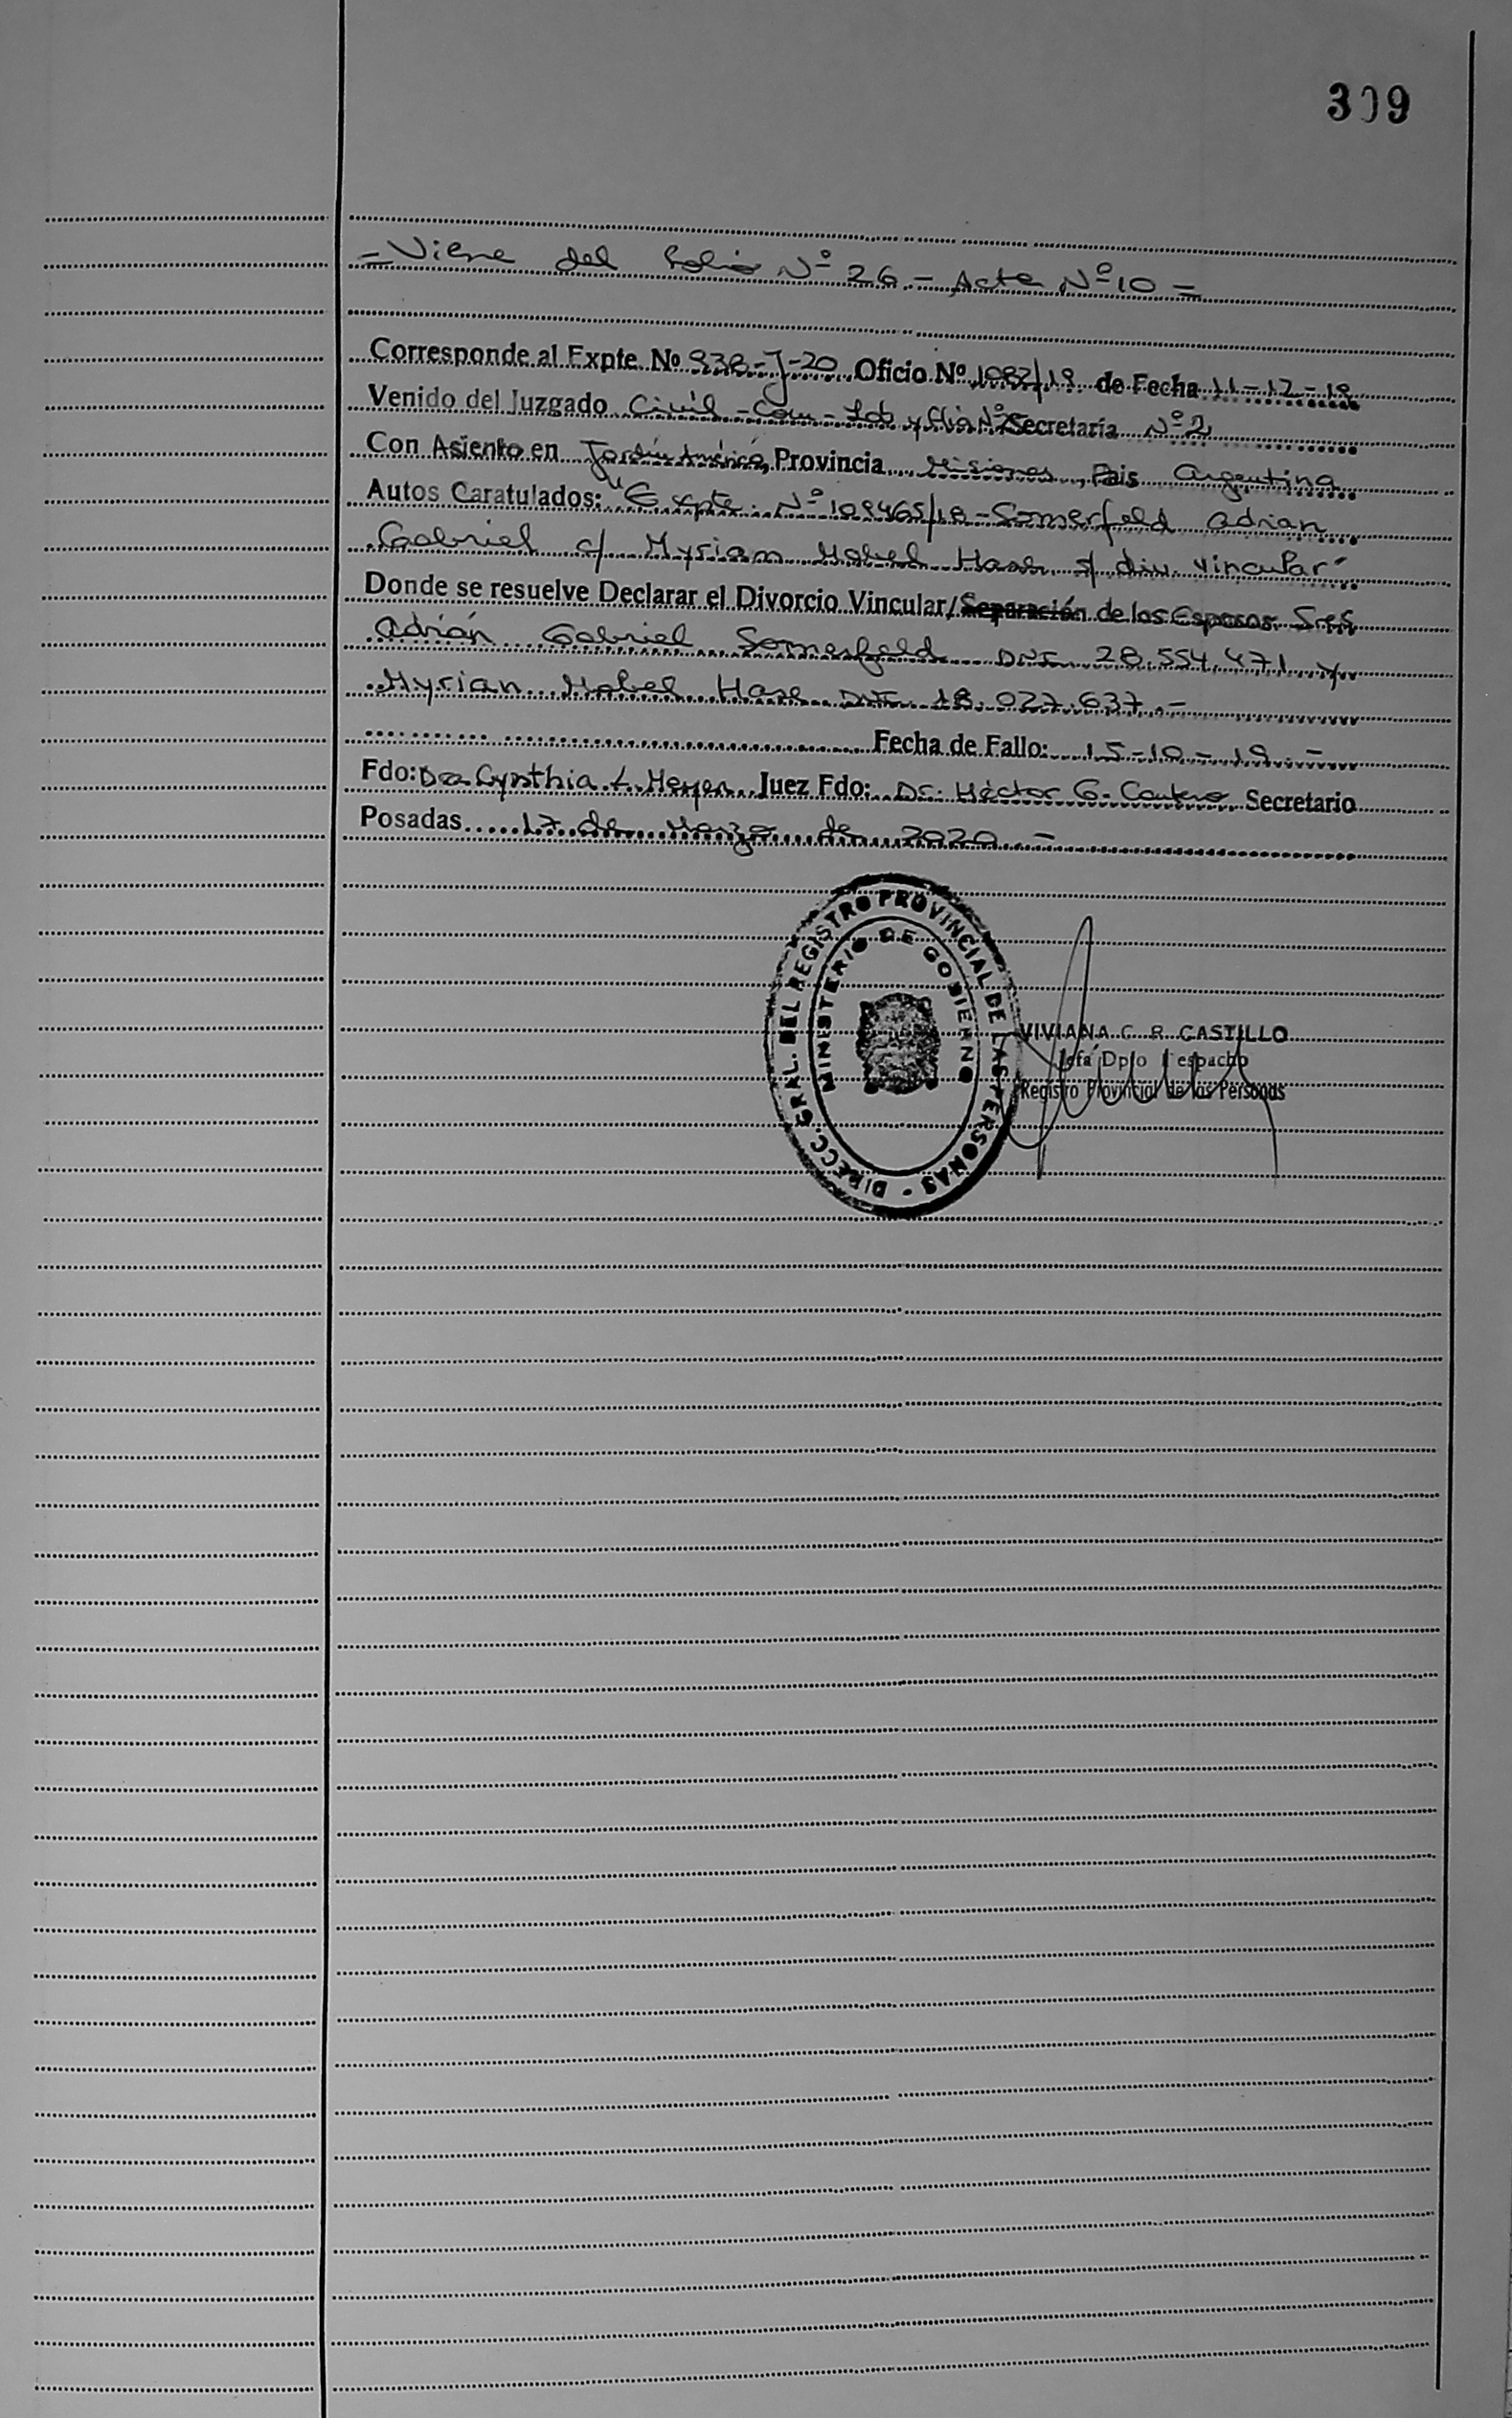 309
- Viene del Folio Nº 26 - Acta Nº 10 -
Corresponde al Expte. Nº 938-J-20 Oficio Nº 1082/19 de Fecha 11-12-19
Venido del Juzgado Civil - Com - Lab y Flia Nº Secretaría Nº 2
Con Asiento en Jardín América, Provincia Misiones, Pais Argentina
Autos Caratulados: "Expte. Nº 109465/18 - Somerfeld Adrian
Gabriel c/ Myriam Mabel Hase s/ div. vincular"
Donde se resuelve Declarar el Divorcio Vincular/Separación de los Esposos Sres
Adrián Gabriel Somerfeld DNI 28.554.471 y
Myrian Mabel Hase DNI 18.027.637.-
Fecha de Fallo: 15-10-19.-
Fdo: Dra Cynthia L. Heyen Juez Fdo: Dr. Héctor G. Secretario
Posadas 17 de Marzo de 2020.-
DIRECC. GRAL. DEL REGISTRO PROVINCIAL DE LAS PERSONAS -
MINISTERIO DE GOBIERNO
VIVIANA C. R. CASTILLO
Jefa Dpto Despacho
Registro Provincial de las Personas